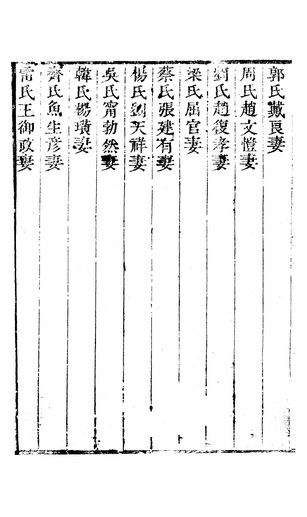 郭氏臧良妻
周氏趙文愷妻
劉氏趙復孝妻
梁氏屈官妻
蔡氏張建有妻
楊氏劉天祥妻
吳氏甯勃然妻
韓氏楊璜妻
齊氏魚生彥妻
雷氏王御政妻